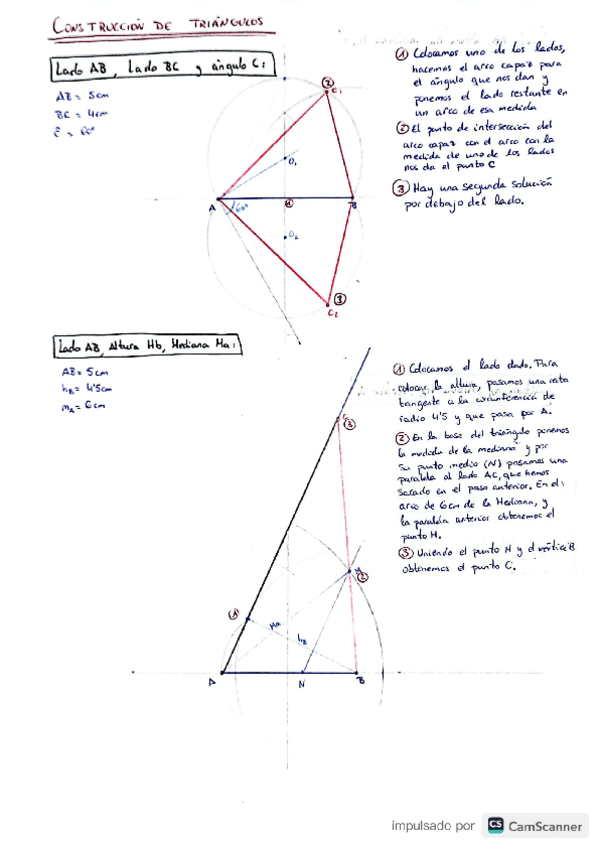 CONSTRUCCIÓN DE TRIÁNGULOS
Lado AB, Lado BC y ángulo C:
AB = 5cm
BC = 4cm
① Colocamos uno de los lados,
hacemos el arco capaz para
el ángulo que nos dan y
ponemos el lado restante en
un arco de esa medida
② El punto de intersección del
arco capaz con el arco con la
medida de uno de los lados
nos da el punto C
③ Hay una segunda solución
por debajo del lado.
②
C₁
O₁
A
60°
①
B
O₂
③
C₂
Lado AB, Altura Hb, Mediana Ma:
AB = 5cm
hB = 4'5cm
mA = 6cm
① Colocamos el lado dado. Para
colocar la altura, pasamos una recta
tangente a la circunferencia de
radio 4'5 y que pasa por A.
② En la base del triángulo ponemos
la medida de la mediana y por
su punto medio (N) pasamos una
paralela al lado AC, que hemos
sacado en el paso anterior. En el
arco de 6cm de la Mediana, y
la paralela anterior obtenemos el
punto M.
③ Uniendo el punto M y el vértice B
obtenemos el punto C.
C
③
②
①
Ma
hB
A
N
B
impulsado por CS CamScanner